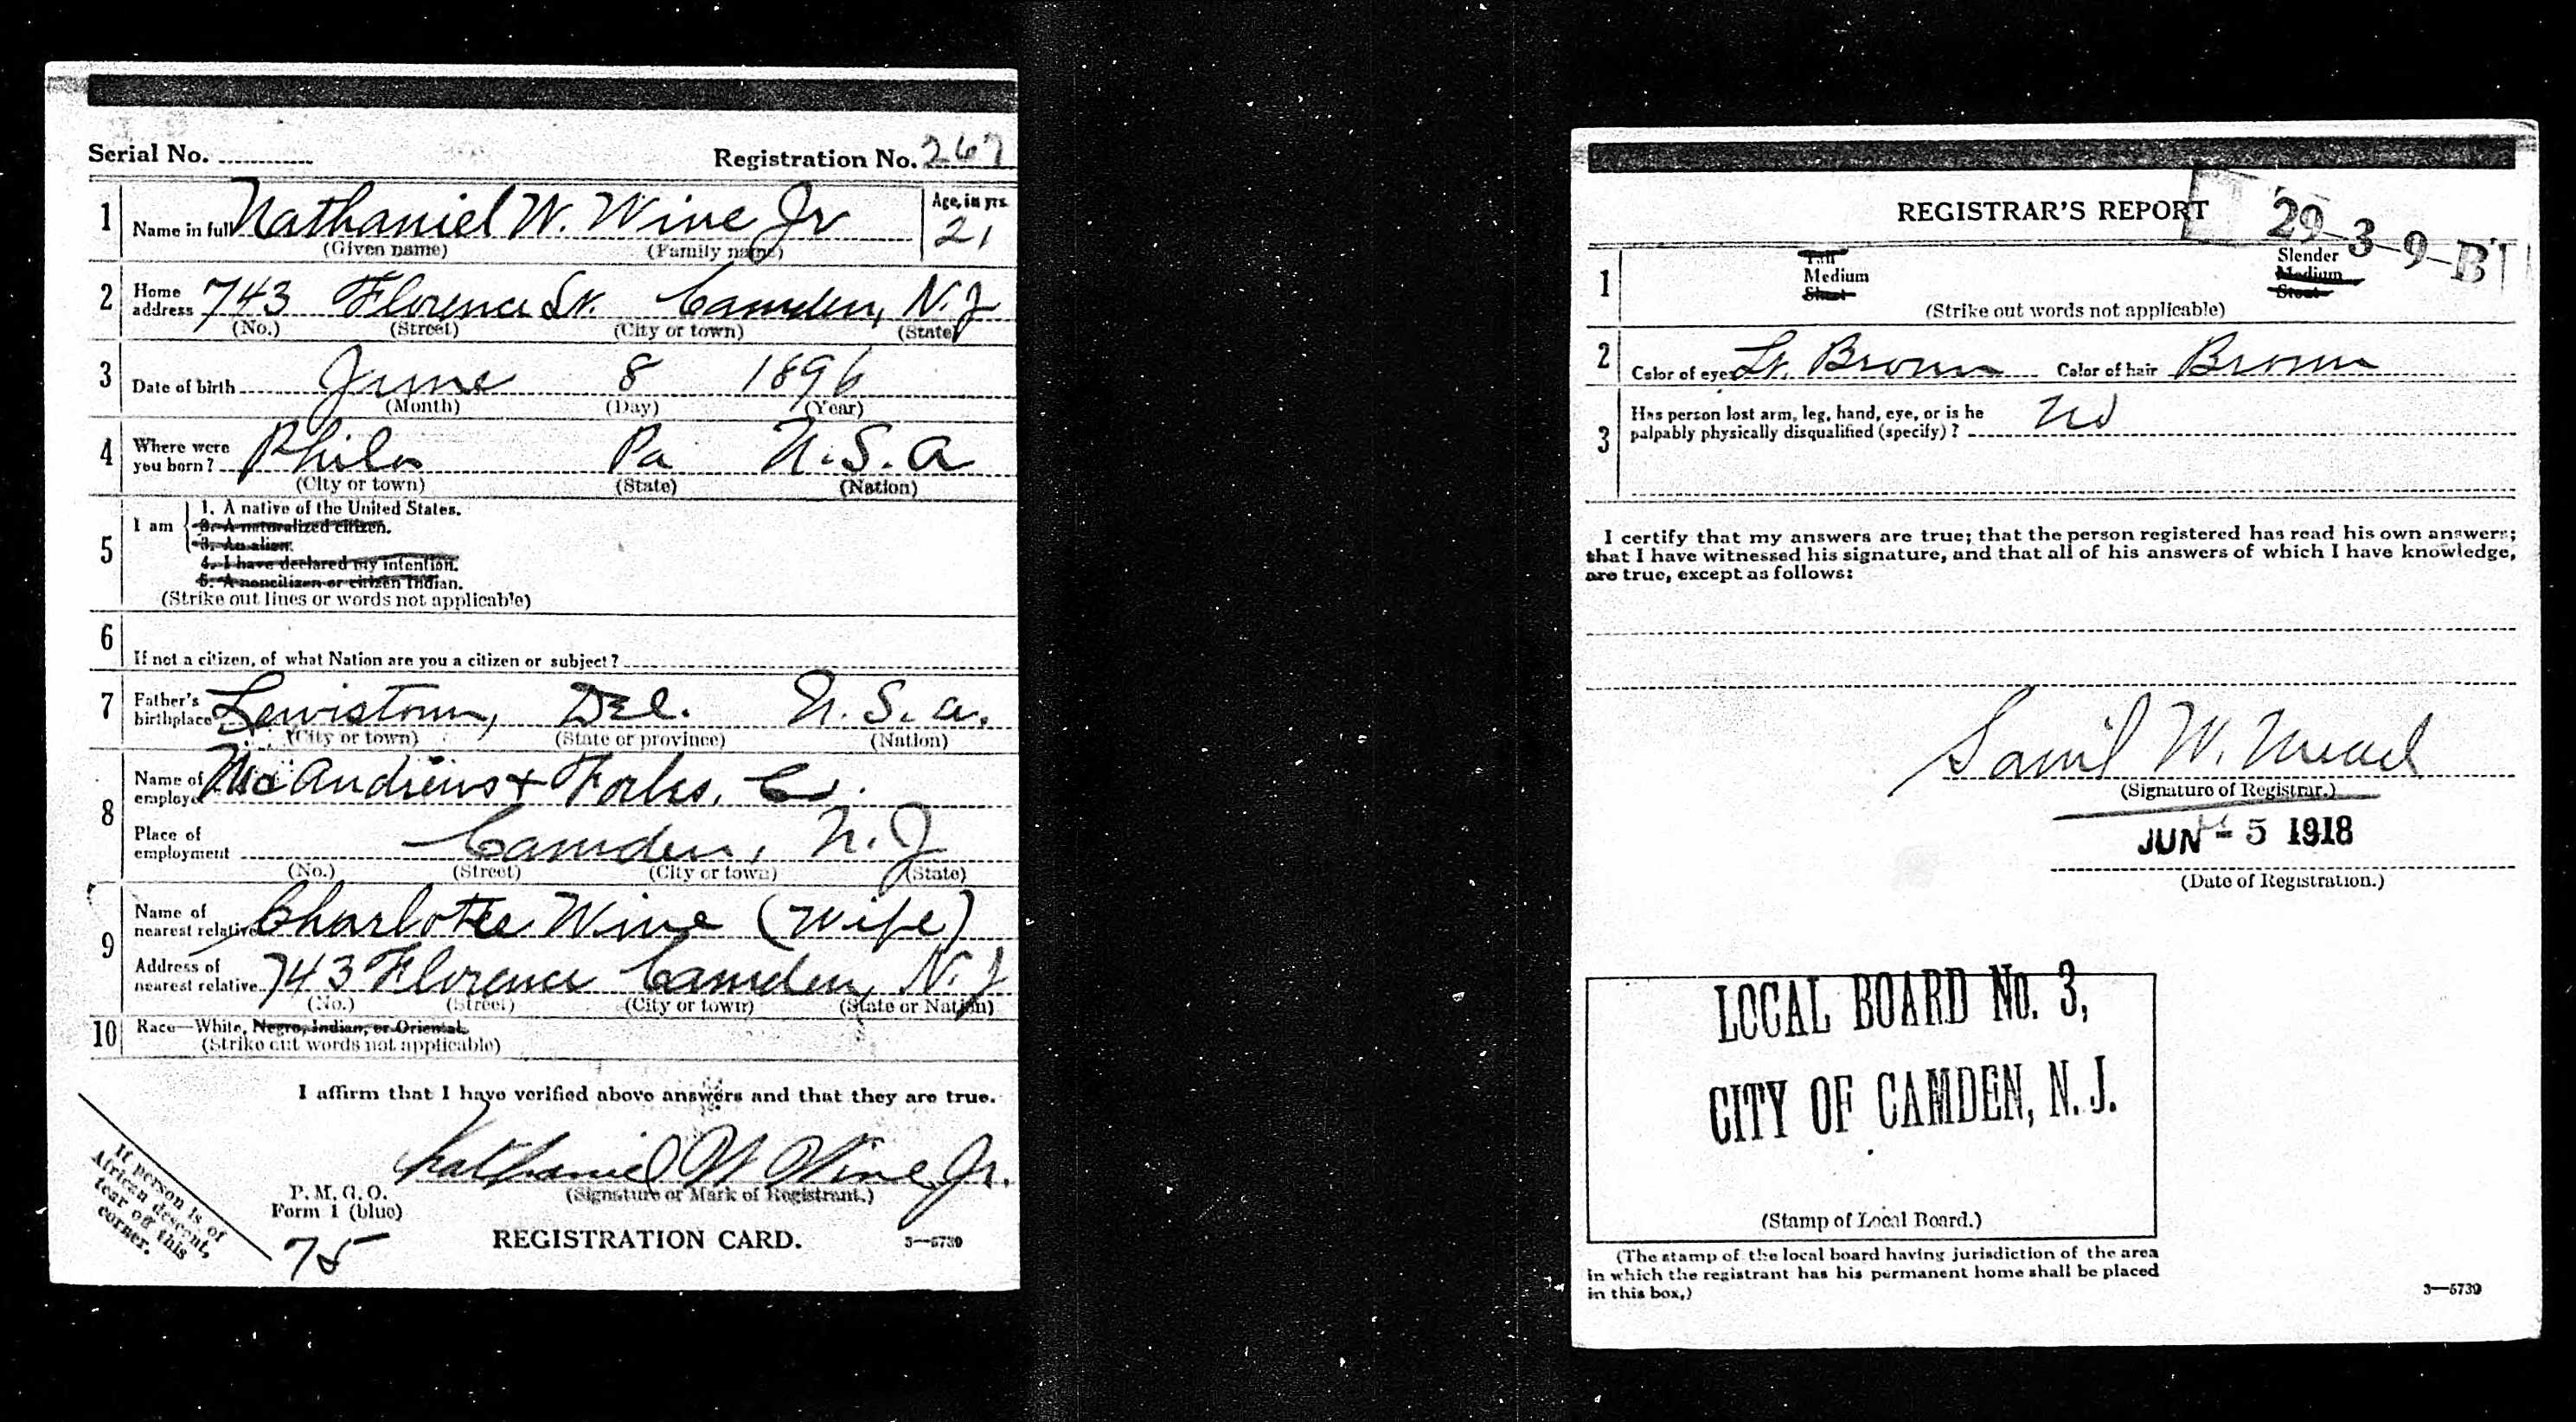 Serial No.
Registration No. 267
1 Name in full Nathaniel W. Wine Jr
Age, in yrs. 21
(Given name) (Family name)
2 Home address 743 Florence St. Camden, N.J
(No.) (Street) (City or town) (State)
3 Date of birth June 8 1896
(Month) (Day) (Year)
4 Where were you born? Phila Pa U.S.A
(City or town) (State) (Nation)
5 I am
1. A native of the United States.
2. A naturalized citizen.
3. An alien.
4. I have declared my intention.
5. A noncitizen or citizen Indian.
(Strike out lines or words not applicable)
6
If not a citizen, of what Nation are you a citizen or subject?
7 Father's birthplace Lewistown, Del. U.S.a.
(City or town) (State or province) (Nation)
8 Name of employer McAndrews + Forbes, Co.
Place of employment Camden, N.J
(No.) (Street) (City or town) (State)
9 Name of nearest relative Charlotte Wine (Wife)
Address of nearest relative 743 Florence Camden, N.J
(No.) (Street) (City or town) (State or Nation)
10 Race—White, Negro, Indian, or Oriental.
(Strike out words not applicable)
I affirm that I have verified above answers and that they are true.
Nathaniel W Wine Jr.
(Signature or Mark of Registrant.)
If person is of
African descent,
tear off this
corner.
P. M. G. O.
Form 1 (blue)
75
REGISTRATION CARD.
3—5739
REGISTRAR'S REPORT
29-3-9-B
1
Tall
Medium
Short
Slender
Medium
Stout
(Strike out words not applicable)
2 Color of eyes Lt. Brown Color of hair Brown
3 Has person lost arm, leg, hand, eye, or is he
palpably physically disqualified (specify)? No
I certify that my answers are true; that the person registered has read his own answers;
that I have witnessed his signature, and that all of his answers of which I have knowledge,
are true, except as follows:
W. Mead
(Signature of Registrar.)
JUN - 5 1918
(Date of Registration.)
LOCAL BOARD No. 3,
CITY OF CAMDEN, N. J.
(Stamp of Local Board.)
(The stamp of the local board having jurisdiction of the area
in which the registrant has his permanent home shall be placed
in this box.)
3—5739